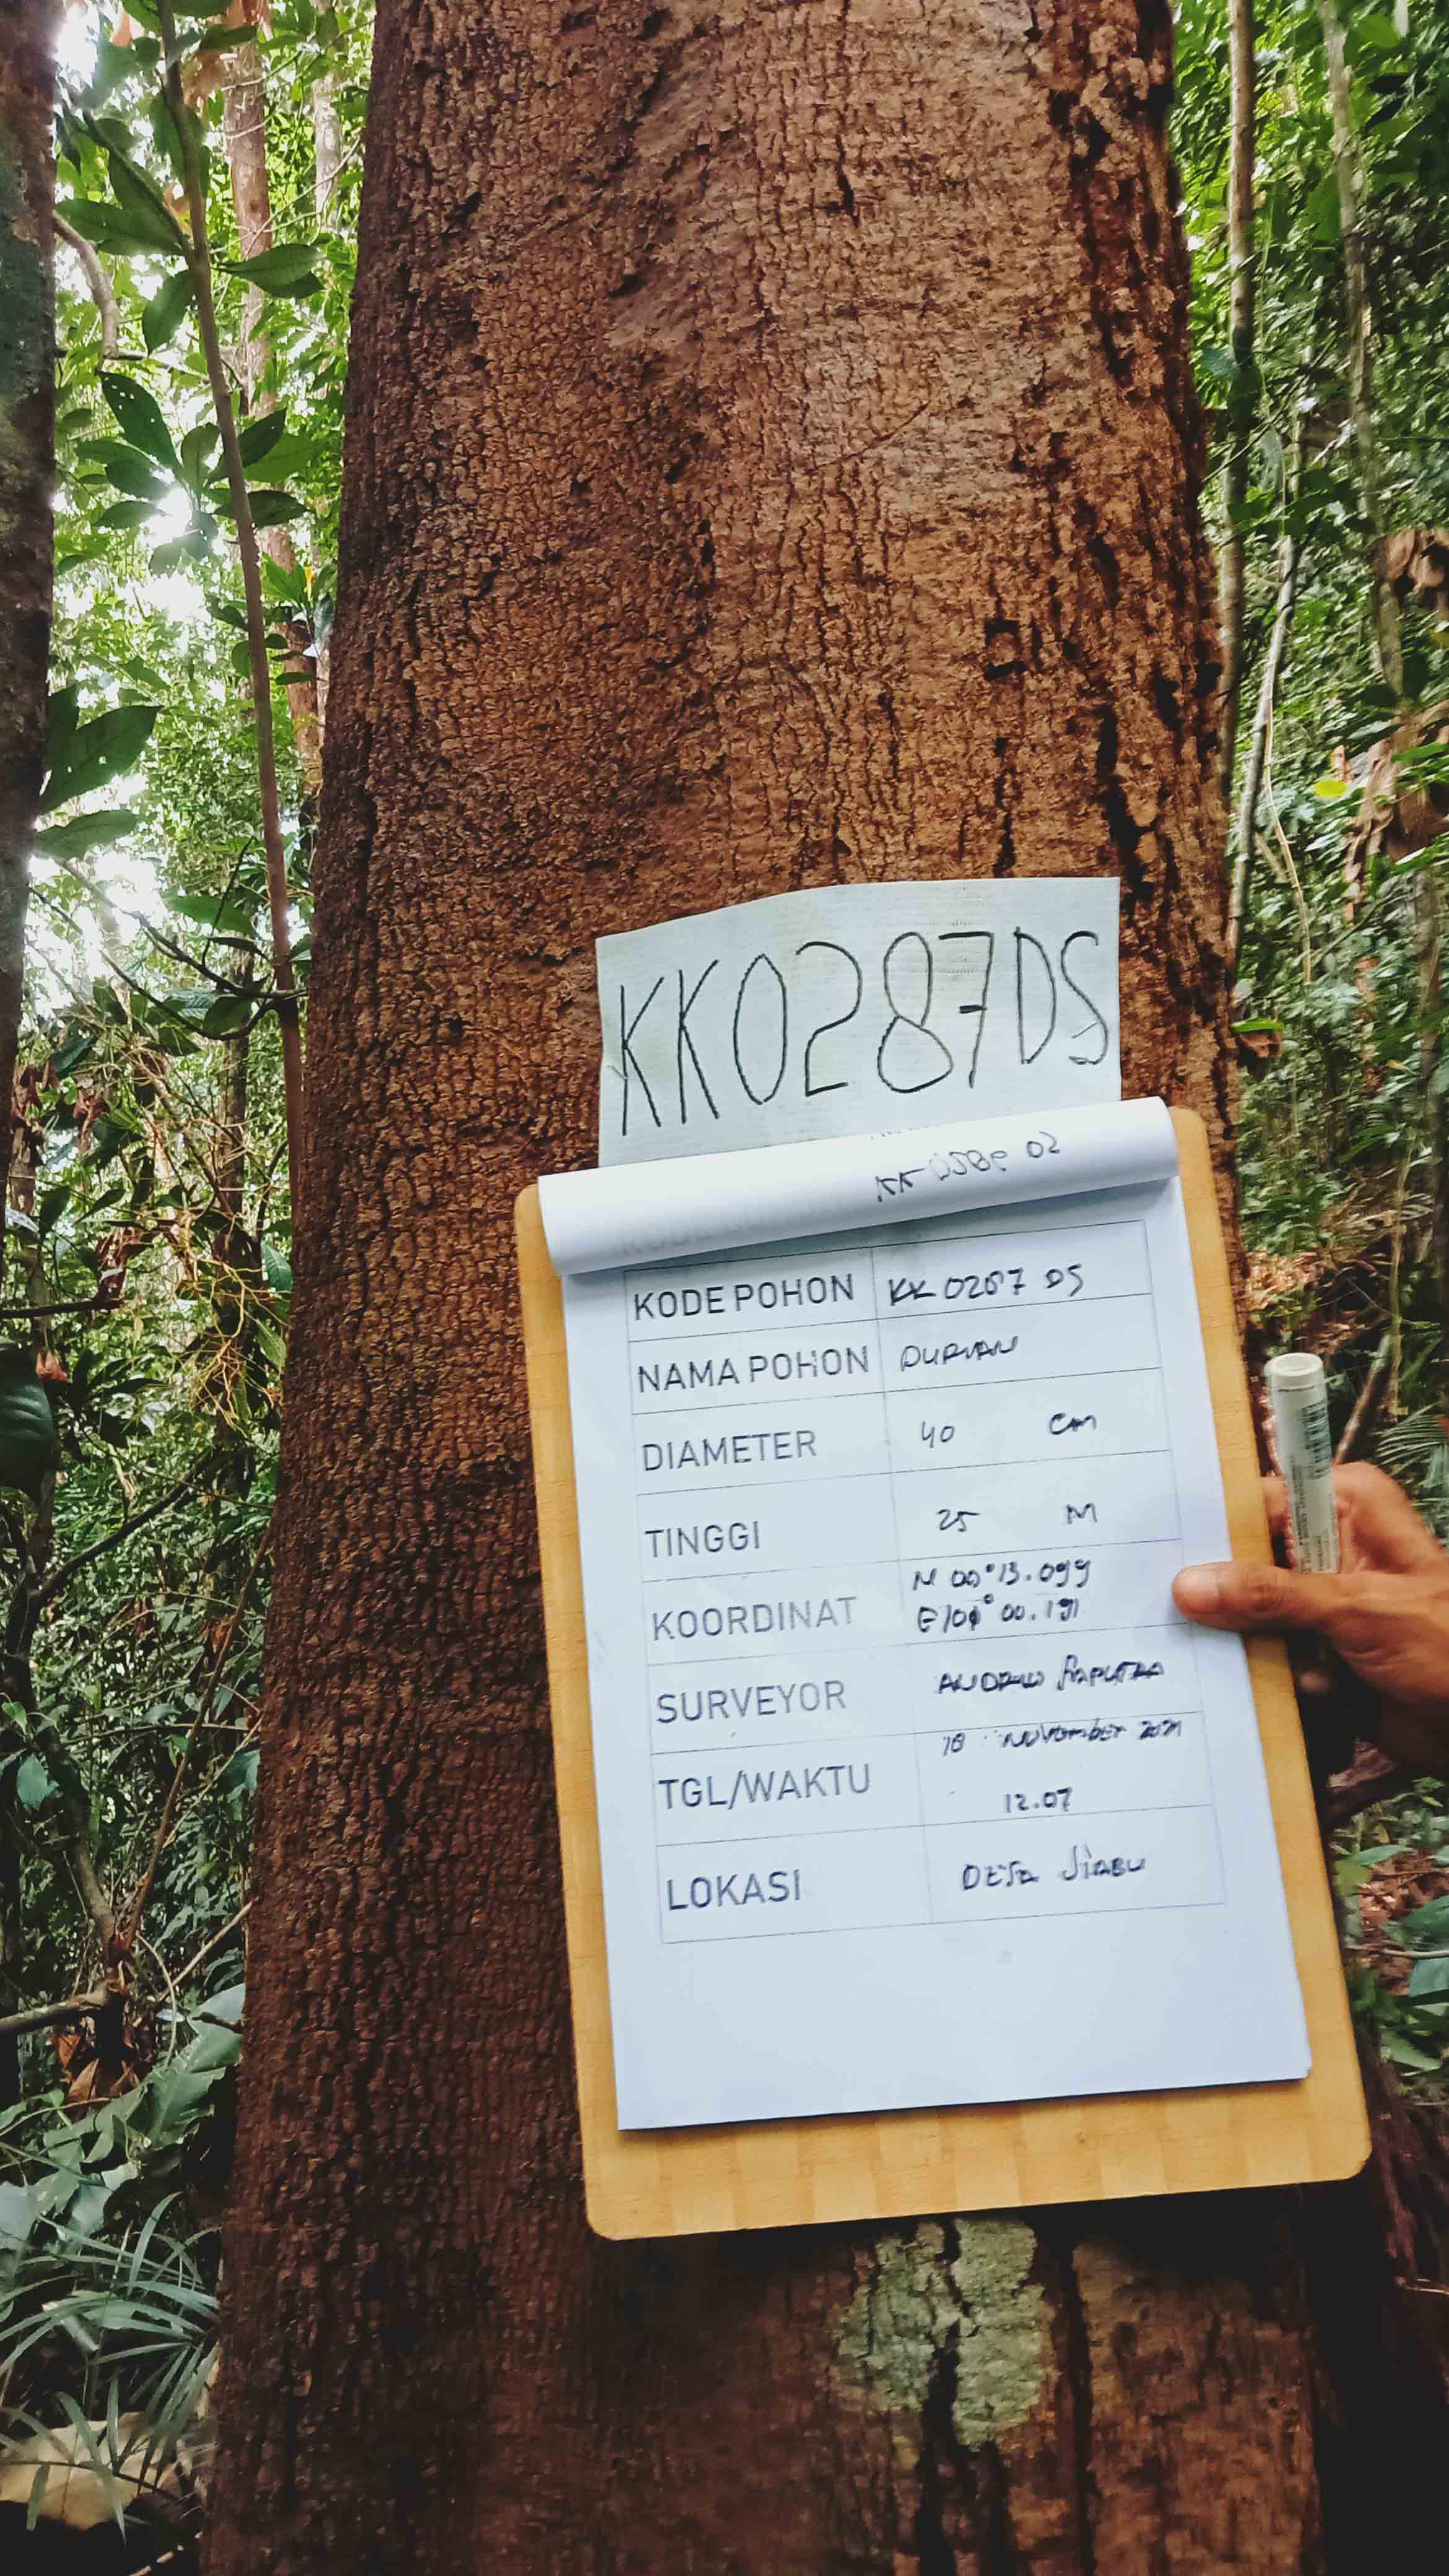 KK0287DS
KK
KODE POHON KK 0287 DS
NAMA POHON DURIAN
DIAMETER 40 CM
TINGGI 25 M
KOORDINAT N 00°13.099
E 100° 00.191
SURVEYOR SAPUTRA
TGL/WAKTU 18 November 2021
12.07
LOKASI DESA SIABU